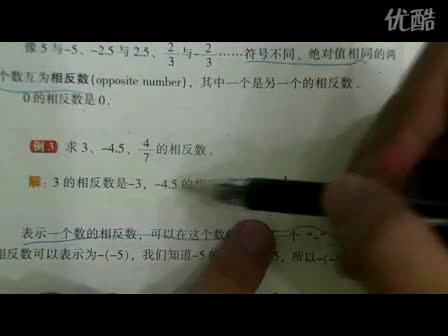 优酷
像 5 与-5、-2.5 与 2.5、2/3 与-2/3……符号不同、绝对值相同的两
个数互为相反数(opposite number)，其中一个是另一个的相反数．
0 的相反数是 0．
例3 求 3、-4.5、4/7 的相反数．
解：3 的相反数是-3，-4.5 的
表示一个数的相反数，可以在这个数 一个“-”
相反数可以表示为-(-5)，我们知道-5 的 5，所以-(-